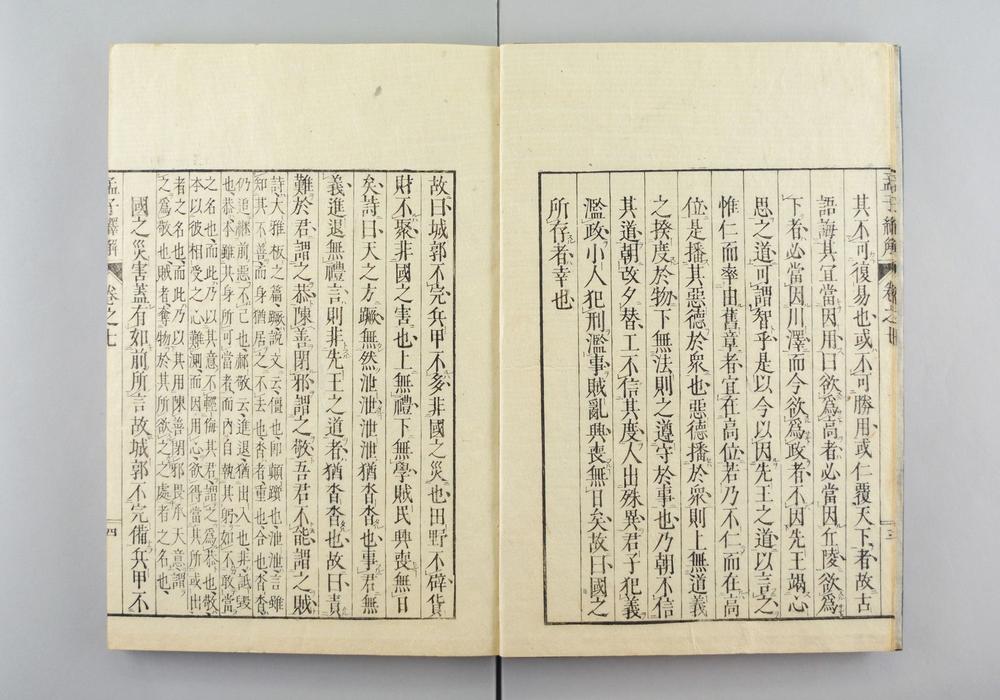 其不可復易也或不可勝用或仁覆天下者故古
語誨其宜當因用曰欲爲高者必當因丘陵欲爲
下者必當因川澤而今欲爲政者不因先王竭心
思之道可謂智乎是以今以因先王之道以言之
惟仁而率由舊章者宜在高位若乃不仁而在高
位是播其惡德於衆也惡德播於衆則上無道義
之揆度於物下無法則之遵守於事也乃朝不信
其道朝改夕替工不信其度人出殊異君子犯義
濫政小人犯刑濫事賊亂興喪無日矣故曰國之
所存者幸也
故曰城郭不完兵甲不多非國之災也田野不辟貨
財不聚非國之害也上無禮下無學賊民興喪無日
矣詩曰天之方蹶無然泄泄泄泄猶沓沓也事君無
義進退無禮言則非先王之道者猶沓沓也故曰責
難於君謂之恭陳善閉邪謂之敬吾君不能謂之賊
詩大雅板之篇蹶說文云僵也卽顛躓也泄泄言雖
知其不善而身猶居之不去也沓者重也合也沓沓
仍追繼前惡不已也鄰敬云進退猶出入也非詆毀
也恭本雖其身所可當者而內自執其躬如不敢當
之名也而此乃以其意不輕侮其君謂之爲恭也敬
本以彼相受之心難測而因用心欲得當其所或出
者之名也而此乃以其用陳善閉邪畏承大意謂
之爲敬也賊者奪物於其所欲之之處者之名也
國之災害蓋有如前所言故城郭不完備兵甲不
孟子繹解 卷之七 四